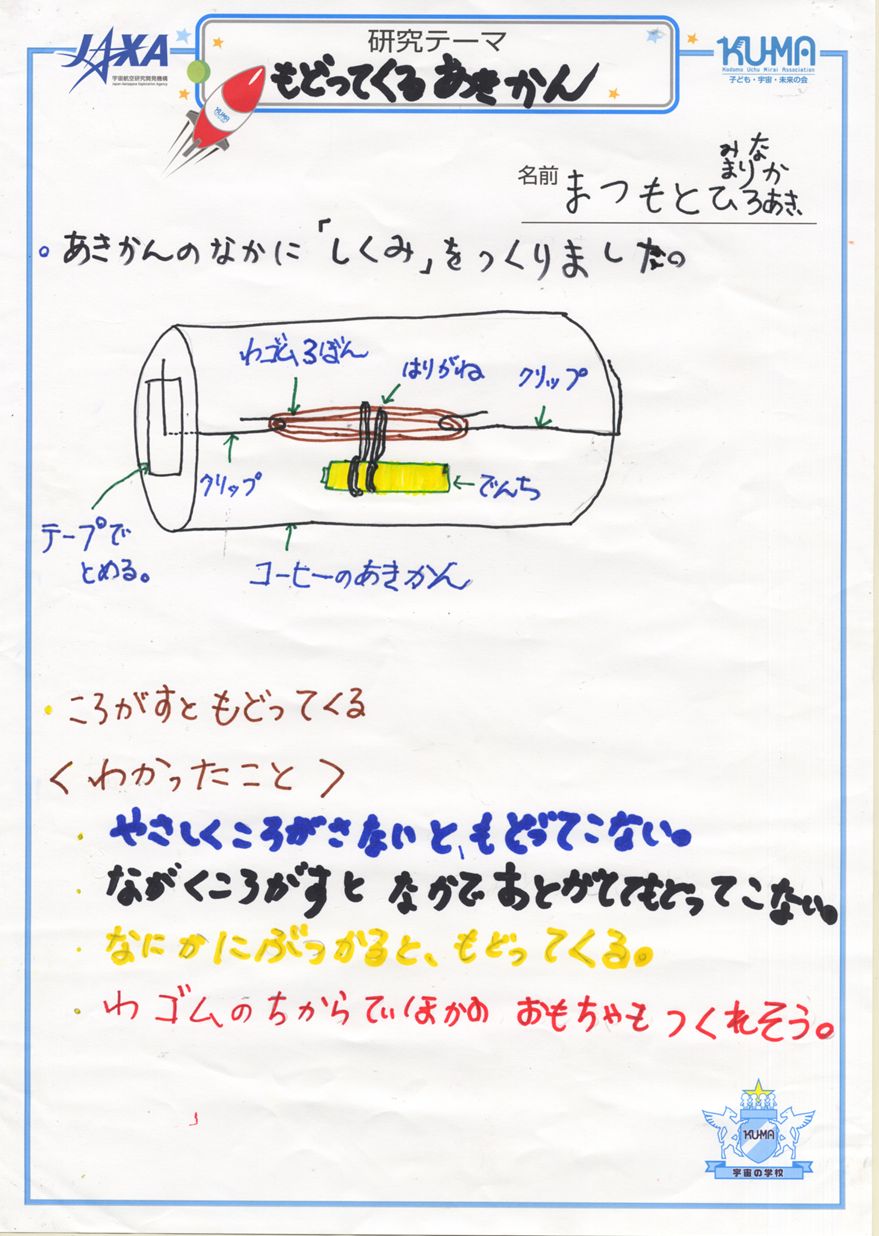 JAXA
宇宙航空研究開発機構
Japan Aerospace Exploration Agency
研究テーマ
もどってくるあきかん
KU-MA
Kodomo Uchu Mirai Association
子ども・宇宙・未来の会
KU-MA
名前 まつもとひろあき
みな
まりか
。あきかんのなかに「しくみ」をつくりました。
わゴム3ぼん
はりがね
クリップ
クリップ
でんち
テープで
とめる。
コーヒーのあきかん
・ころがすともどってくる
<わかったこと>
・やさしくころがさないと、もどってこない。
・ながくころがすと なかで おとがてもどってこない。
・なにかにぶつかると、もどってくる。
・わゴムのちからでほかの おもちゃも つくれそう。
KU-MA
宇宙の学校